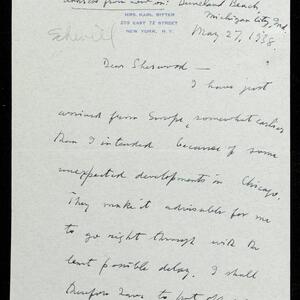 address from now on: Duneland Beach,
Michigan City, Ind.
MRS. KARL BITTER
209 EAST 72 STREET
NEW YORK, N.Y.
Schevill
May 27, 1938.
Dear Sherwood -
I have just
arrived from Europe, somewhat earlier
than I intended because of some
unexpected developments in Chicago.
They make it advisable for me
to go right through with the
least possible delay. I shall
therefore have to put off